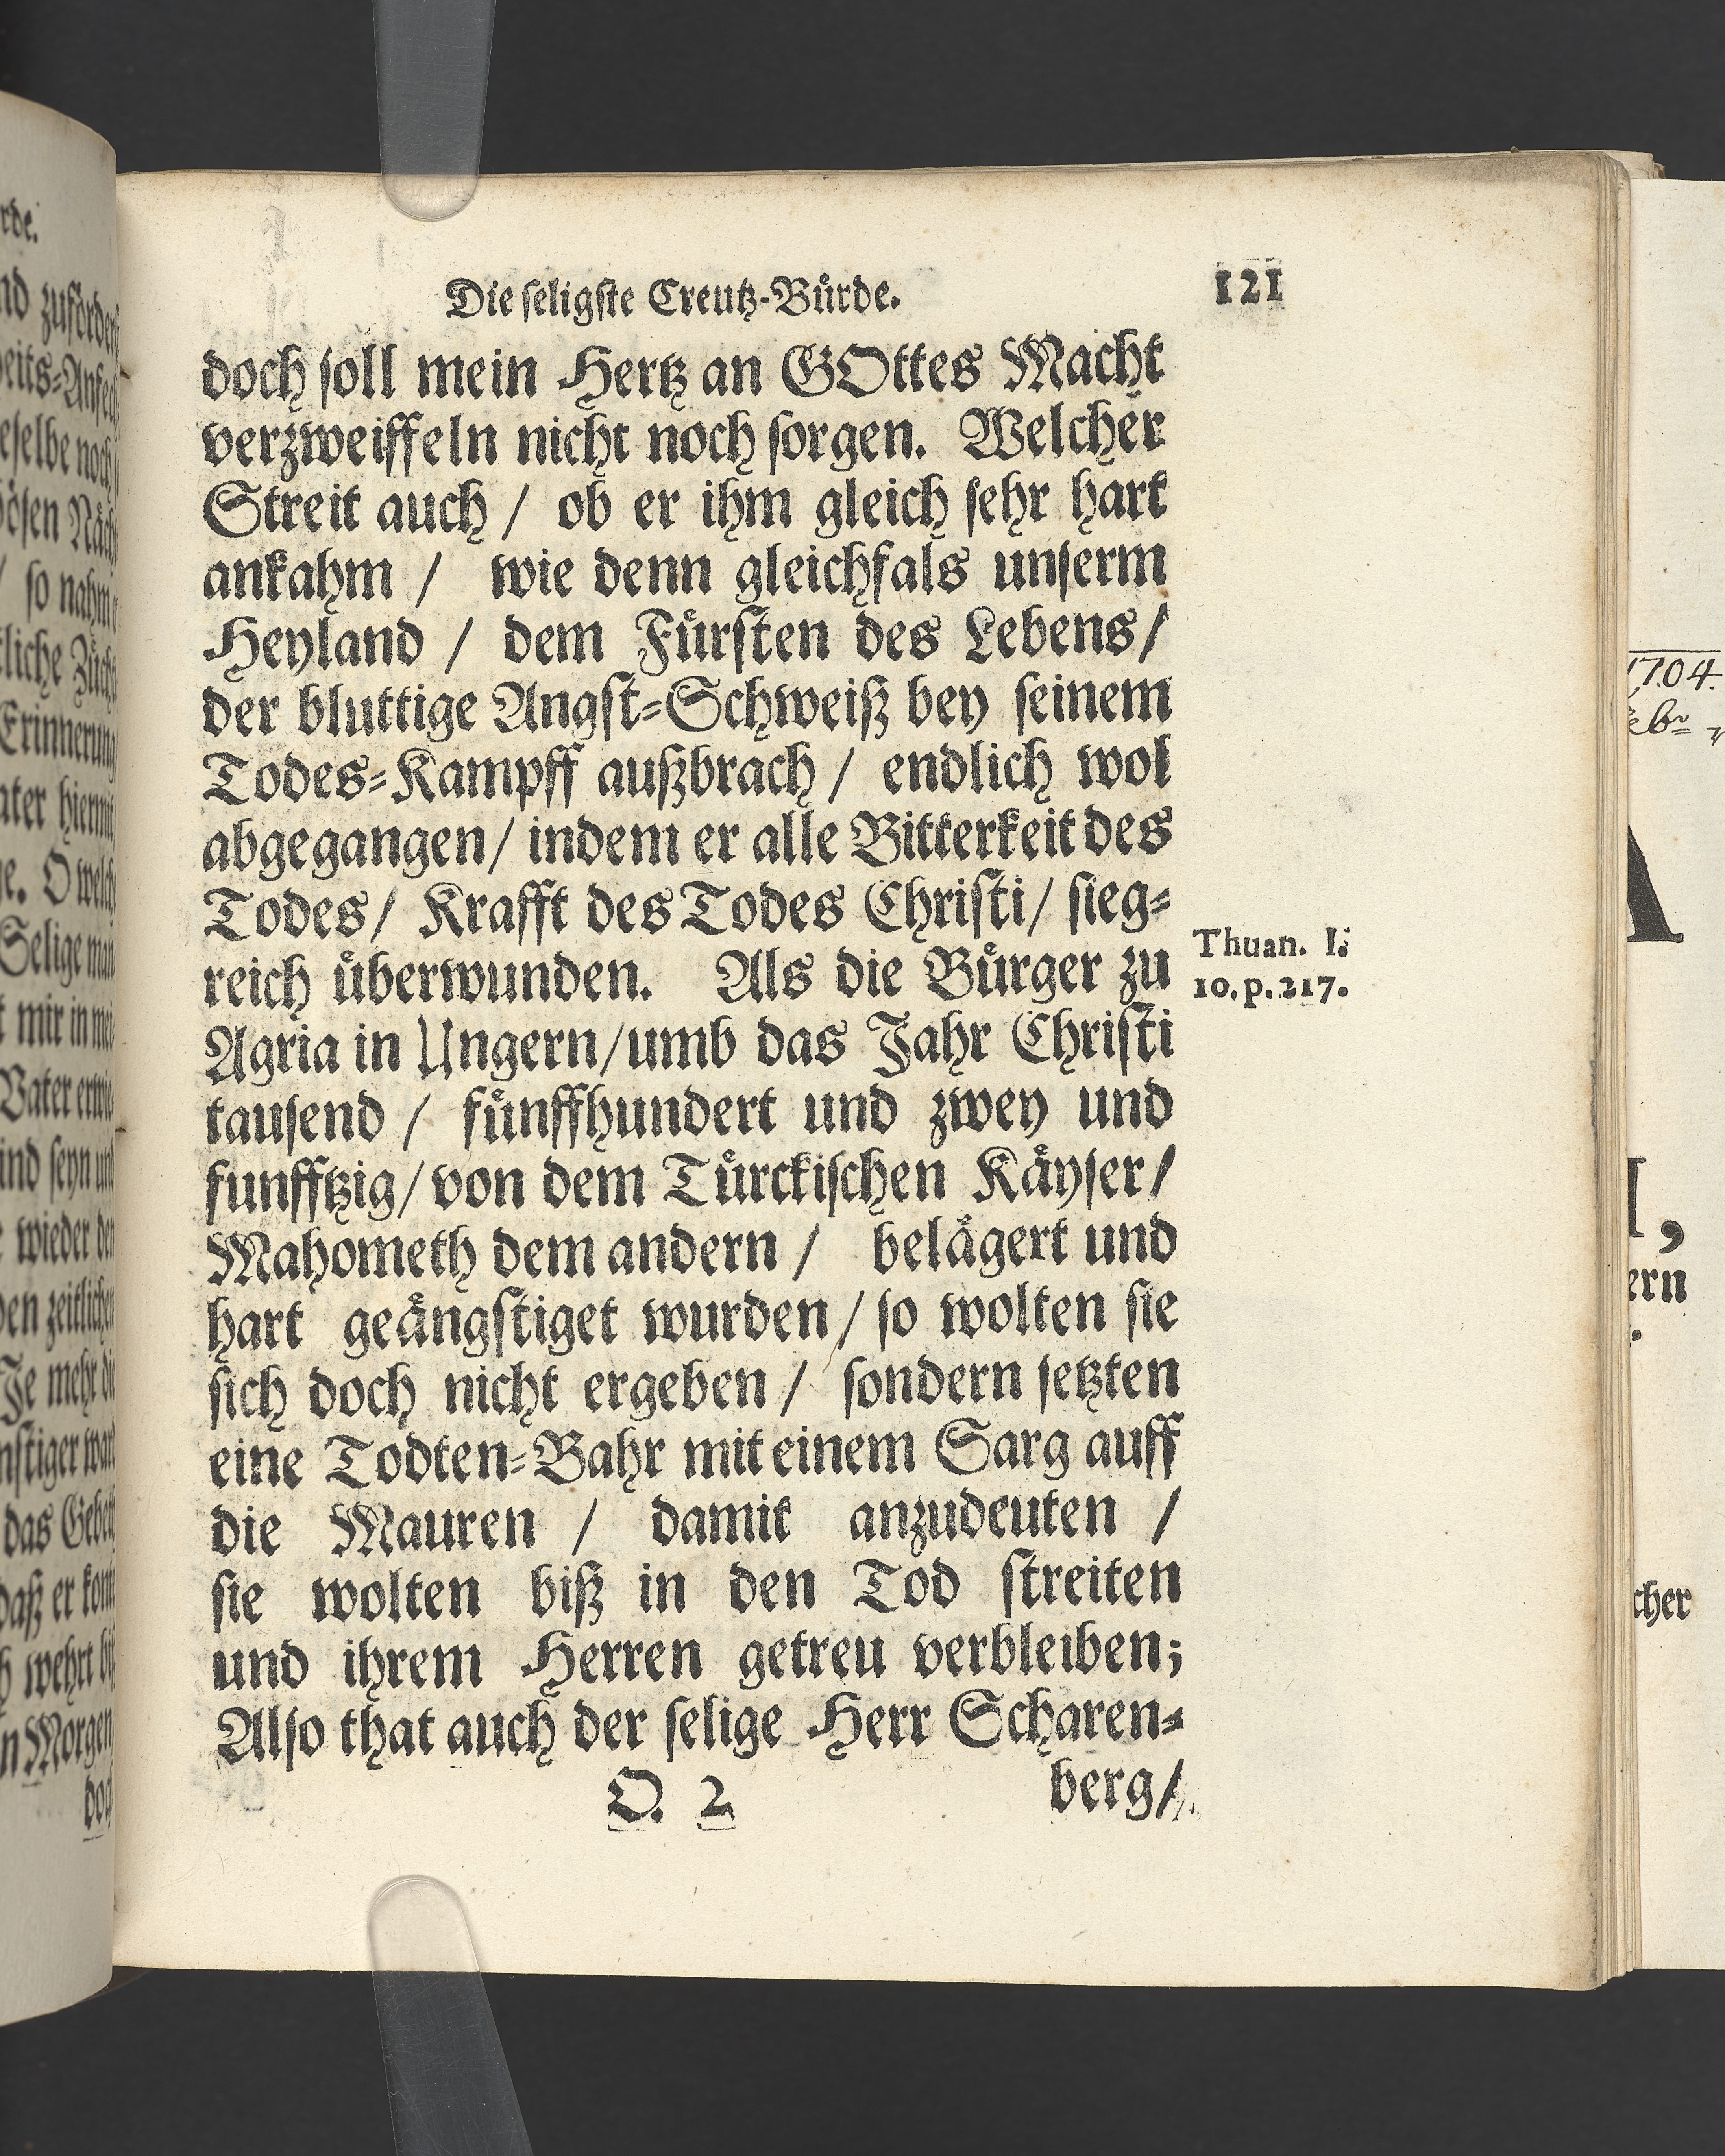 Die seligste Creutz-Bürde.
121
doch soll mein Hertz an GOttes Macht
verzweiffeln nicht noch sorgen. Welcher
Streit auch / ob er ihm gleich sehr hart
ankahm / wie denn gleichfals unserm
Heyland / dem Fürsten des Lebens/
der bluttige Angst-Schweiß bey seinem
Todes-Kampff außbrach / endlich wol
abgegangen/ indem er alle Bitterkeit des
Todes/ Krafft des Todes Christi/ sieg-
reich überwunden. Als die Bürger zu
Agria in Ungern/umb das Jahr Christi
tausend / fünffhundert und zwey und
funfftzig/ von dem Türckischen Käyser/
Mahometh dem andern / belägert und
hart geängstiget wurden/ so wolten sie
sich doch nicht ergeben/ sondern setzten
eine Todten-Bahr mit einem Sarg auff
die Mauren / damit anzudeuten /
sie wolten biß in den Tod streiten
und ihrem Herren getreu verbleiben;
Also that auch der selige Herr Scharen-
O. 2
berg/
Thuan. l.
10. p. 217.
rde.
so nahm
Erinnerung
Selige
mir in
Vater
wieder der
den zeitlichen
Je mehr
das
daß er
wehrt
Morgen
1704.
ern
cher